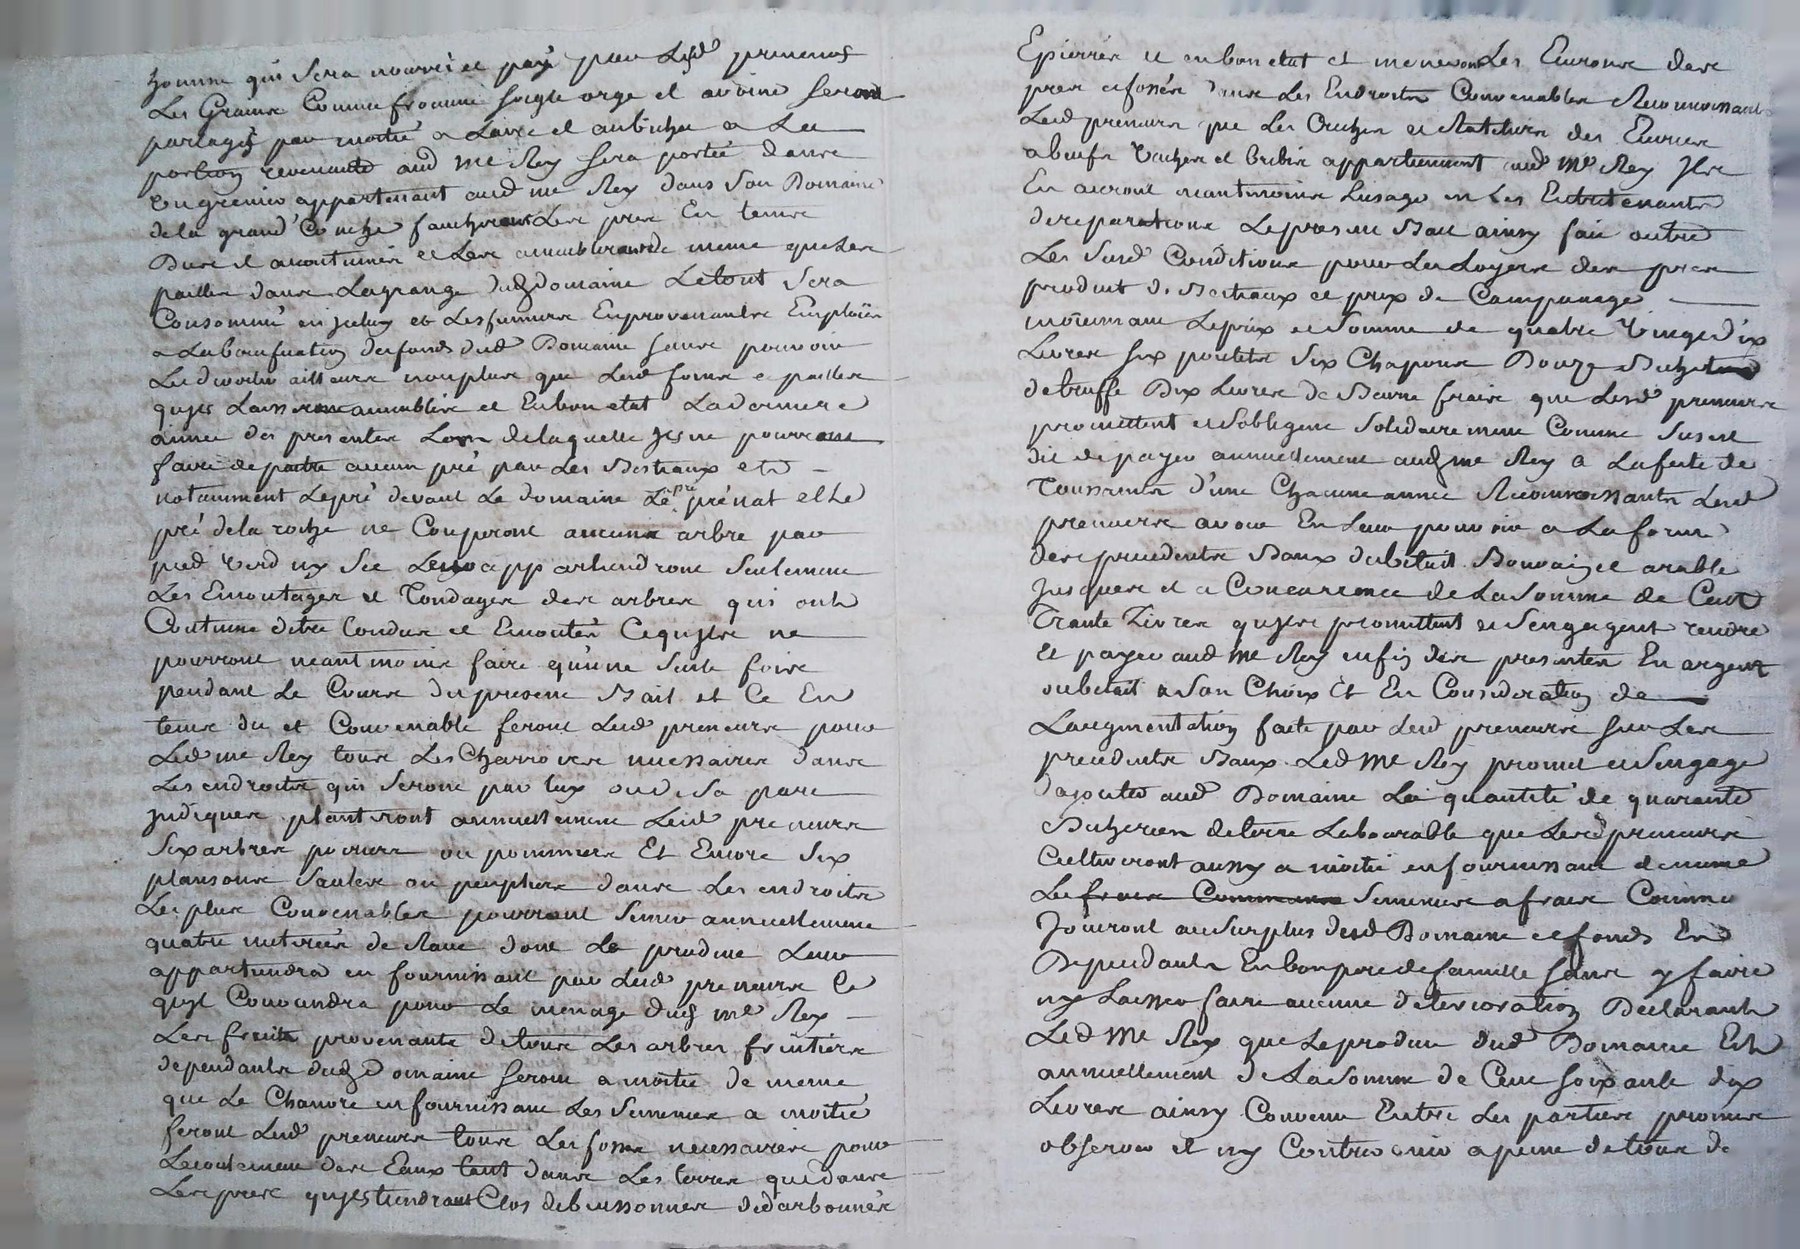 homme qui sera nourri et payé par Lesd preneurs
Les Grains Comme froment seigle orge et avoine seront
partagés par moitié a Laire et au bichet & La
portion revenante aud me Rey sera portée dans
Un grenier appartenant aud me Rey dans son Domaine
de la grand Couche faucheront Les prés En tems
Dus et acoutumés et Les ameubleront de meme que Les
pailles dans Lagrange dud domaine Letout sera
Consommé en iceluy et Les fumiers Enprovenants Emploiés
a Labonification des fonds dud Domaine sans pouvoir
Les divertir ailleurs non plus que Lesd foins & pailles
quils Laisseront ameublés et Enbon etat La derniere
année des presentes Lors de laquelle ils ne pourront
faire depaitre aucun pré par Les Bestiaux etc
notamment Lepré devant Le domaine Le pré prénat et Le
pré de la roche ne Couperont aucuns arbre par
pied verd ny sec Leurs appartiendront seulement
Les Emontages et Tondages des arbres qui ont
Coutume detre tondus et Emontés Cequils ne
pourront neantmoins faire qu'une seule fois
pendant Le Cours du present Bail et Ce En
tems du et Convenable feront Lesd preneurs pour
Led me Rey tous Les Charrois necessaires dans
Les endroits qui seront par Lux ou de sa part
Indiqués planteront annuellement Lesd preneurs
six arbres poiriers ou pommiers Et Encore six
plansons saules ou peupliers dans Les endroits
Les plus Convenables pourront semer annuellement
quatre meterées de Rave dont Le produit Leur
appartiendra en fournissant par Lesd preneurs Ce
quil Conviendra pour Le menage dud me Rey
Les fruits provenants de tous Les arbres fruitiers
dependants dud Domaine seront a moitié de meme
que Le Chanvre en fournissant Les semences a moitié
feront Lesd preneurs tous Les fossés necessaires pour
Lecoulement des Eaux tant dans Les terres que dans
Les prés quils tiendront Clos debuissonnés
Epierrés et enbon etat et Les Eaux des
prés & fossés dans Les Endroits Convenables Reconnoissants
Lesd preneurs que Les Creches et Rateliers des Ecuries
a bœufs Vaches et brebis appartiennent aud me Rey Ils
En auront neantmoins Lusage en Les Entretenants
dereparations Lepresent Bail ainsy fait outre
Les susd Conditions pour Les Loyers des prés
produit de Bestiaux et prix de
moiennant Leprix et somme de quatre Vingt dix
Livres six poulets six Chapons Douze Bichets
de truffe Dix Livres de Beurre frais que Lesd preneurs
promettent et sobligent solidairement Comme susest
dit de payer annuellement aud me Rey a Lafeste de
Toussaints d'une Chacune année Reconnoissants Lesd
preneurs avoir En Leur pouvoir a La forme
des precedents Baux dubetail arable
Jusques et a Concurrence de La somme de Cent
Trante Livres quils promettent et sengagent rendre
et payer aud me Rey enfin des presentes En argent
oubetail a son Choix Et En Consideration de
Laugmentation faite par Lesd preneurs sur Les
precedents Baux Led Me Rey promet et sengage
dajouter aud Domaine La quantité de quarante
Bicherées de terre Labourable que Lesd preneurs
Cultiveront aussy a moitié enfournissant de meme
Les frais Communs semences a frais Communs
Jouiront ausurplus dud Domaine et fonds En
Dependants Enbon pere de famille sans y faire
ny Laisser faire aucune deterioration Declarants
Led Me Rey que Leproduit dud Domaine Est
annuellement de Lasomme de Cent soixante dix
Livres ainsy Convenu Entre Les parties promis
observer et ny Contrevenir a peine detous de